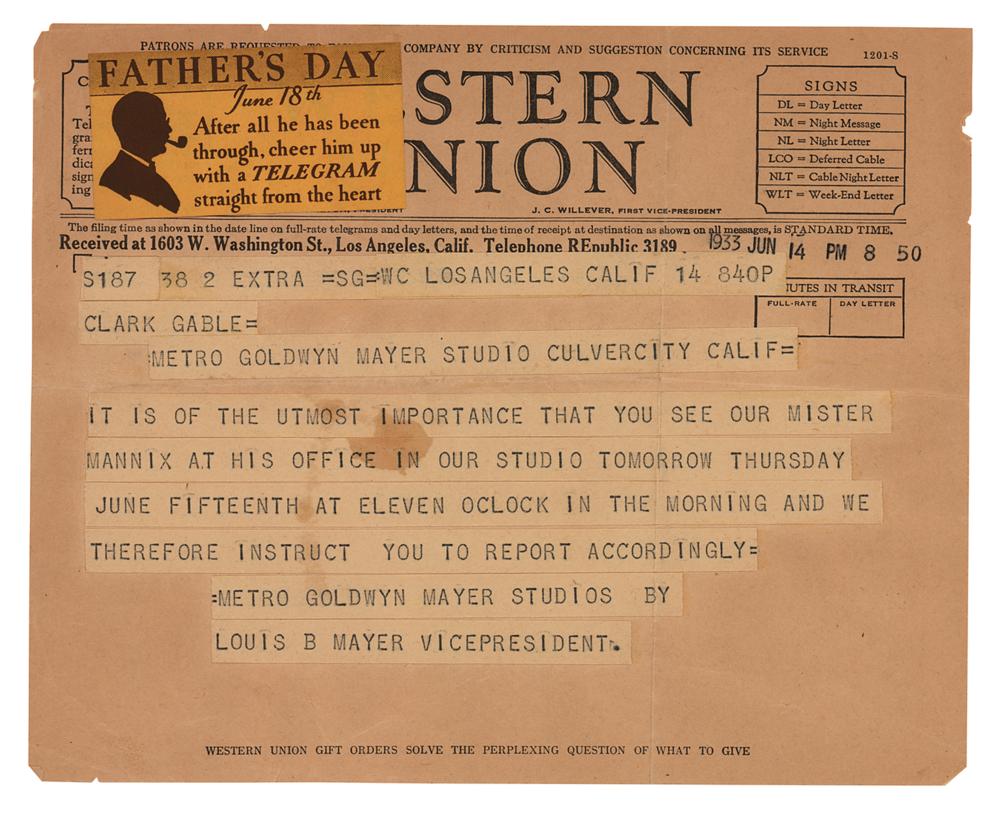 PATRONS ARE REQUESTED TO COMPANY BY CRITICISM AND SUGGESTION CONCERNING ITS SERVICE
1201-S
FATHER'S DAY
June 18th
After all he has been
through, cheer him up
with a TELEGRAM
straight from the heart
STERN
NION
SIGNS
DL = Day Letter
NM = Night Message
NL = Night Letter
LCO = Deferred Cable
NLT = Cable Night Letter
WLT = Week-End Letter
J. C. WILLEVER, FIRST VICE-PRESIDENT
The filing time as shown in the date line on full-rate telegrams and day letters, and the time of receipt at destination as shown on all messages, is STANDARD TIME.
Received at 1603 W. Washington St., Los Angeles, Calif. Telephone REpublic 3189. 1933 JUN 14 PM 8 50
S187 38 2 EXTRA =SG=WC LOSANGELES CALIF 14 840P
UTES IN TRANSIT
FULL-RATE DAY LETTER
CLARK GABLE=
METRO GOLDWYN MAYER STUDIO CULVERCITY CALIF=
IT IS OF THE UTMOST IMPORTANCE THAT YOU SEE OUR MISTER
MANNIX AT HIS OFFICE IN OUR STUDIO TOMORROW THURSDAY
JUNE FIFTEENTH AT ELEVEN OCLOCK IN THE MORNING AND WE
THEREFORE INSTRUCT YOU TO REPORT ACCORDINGLY=
=METRO GOLDWYN MAYER STUDIOS BY
LOUIS B MAYER VICEPRESIDENT.
WESTERN UNION GIFT ORDERS SOLVE THE PERPLEXING QUESTION OF WHAT TO GIVE